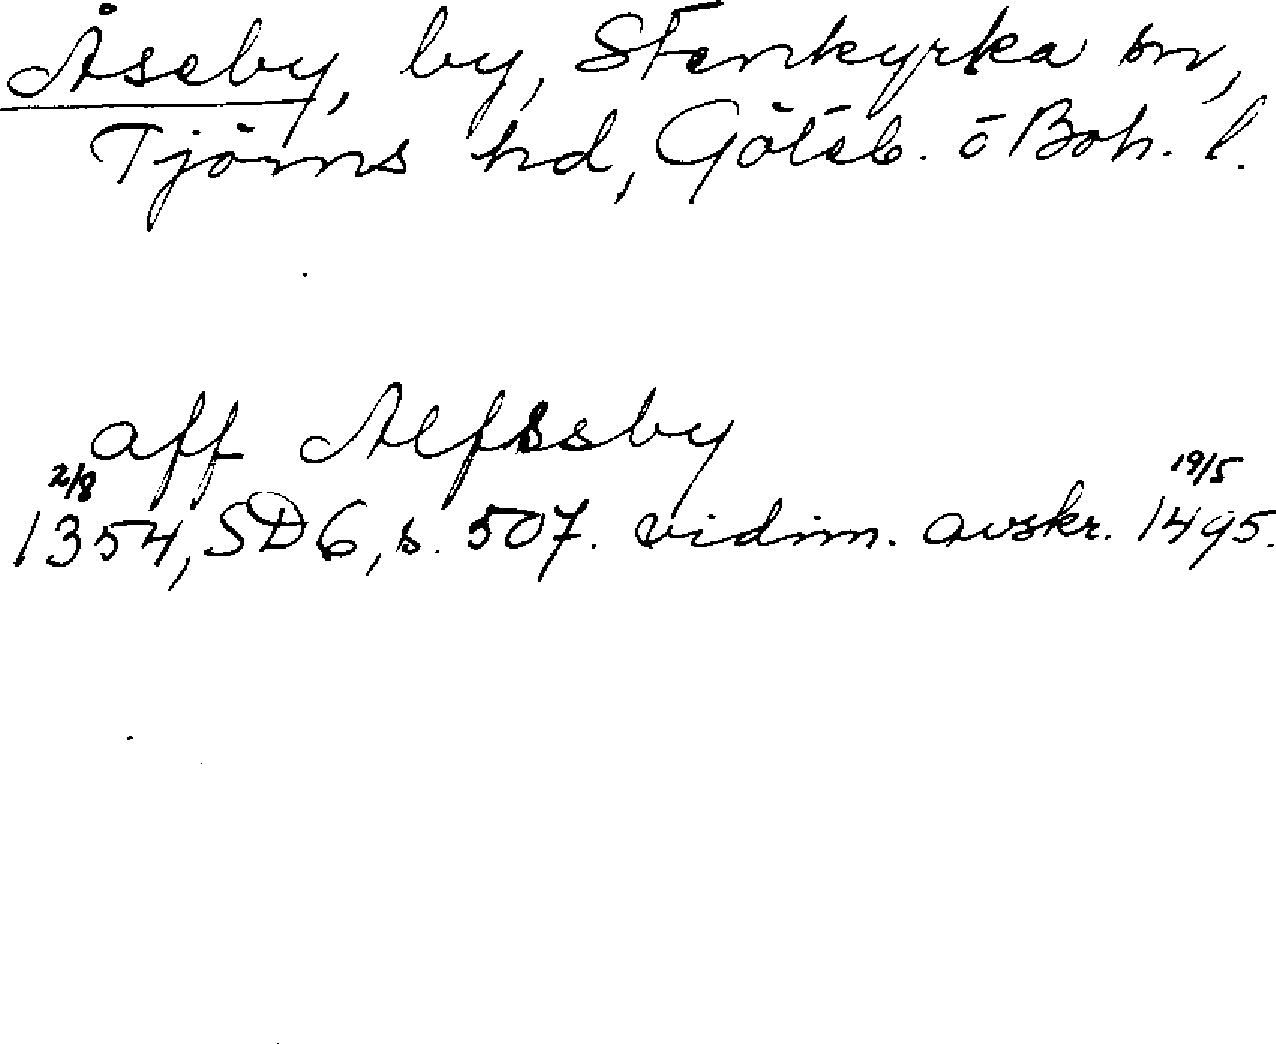 Åseby, by, Stenkyrka sn,
Tjörns hd, Göteb. o Boh. l.
aff Alfssby
2/8 19/5
1354, SD 6, s. 507. vidim. avskr. 1495.